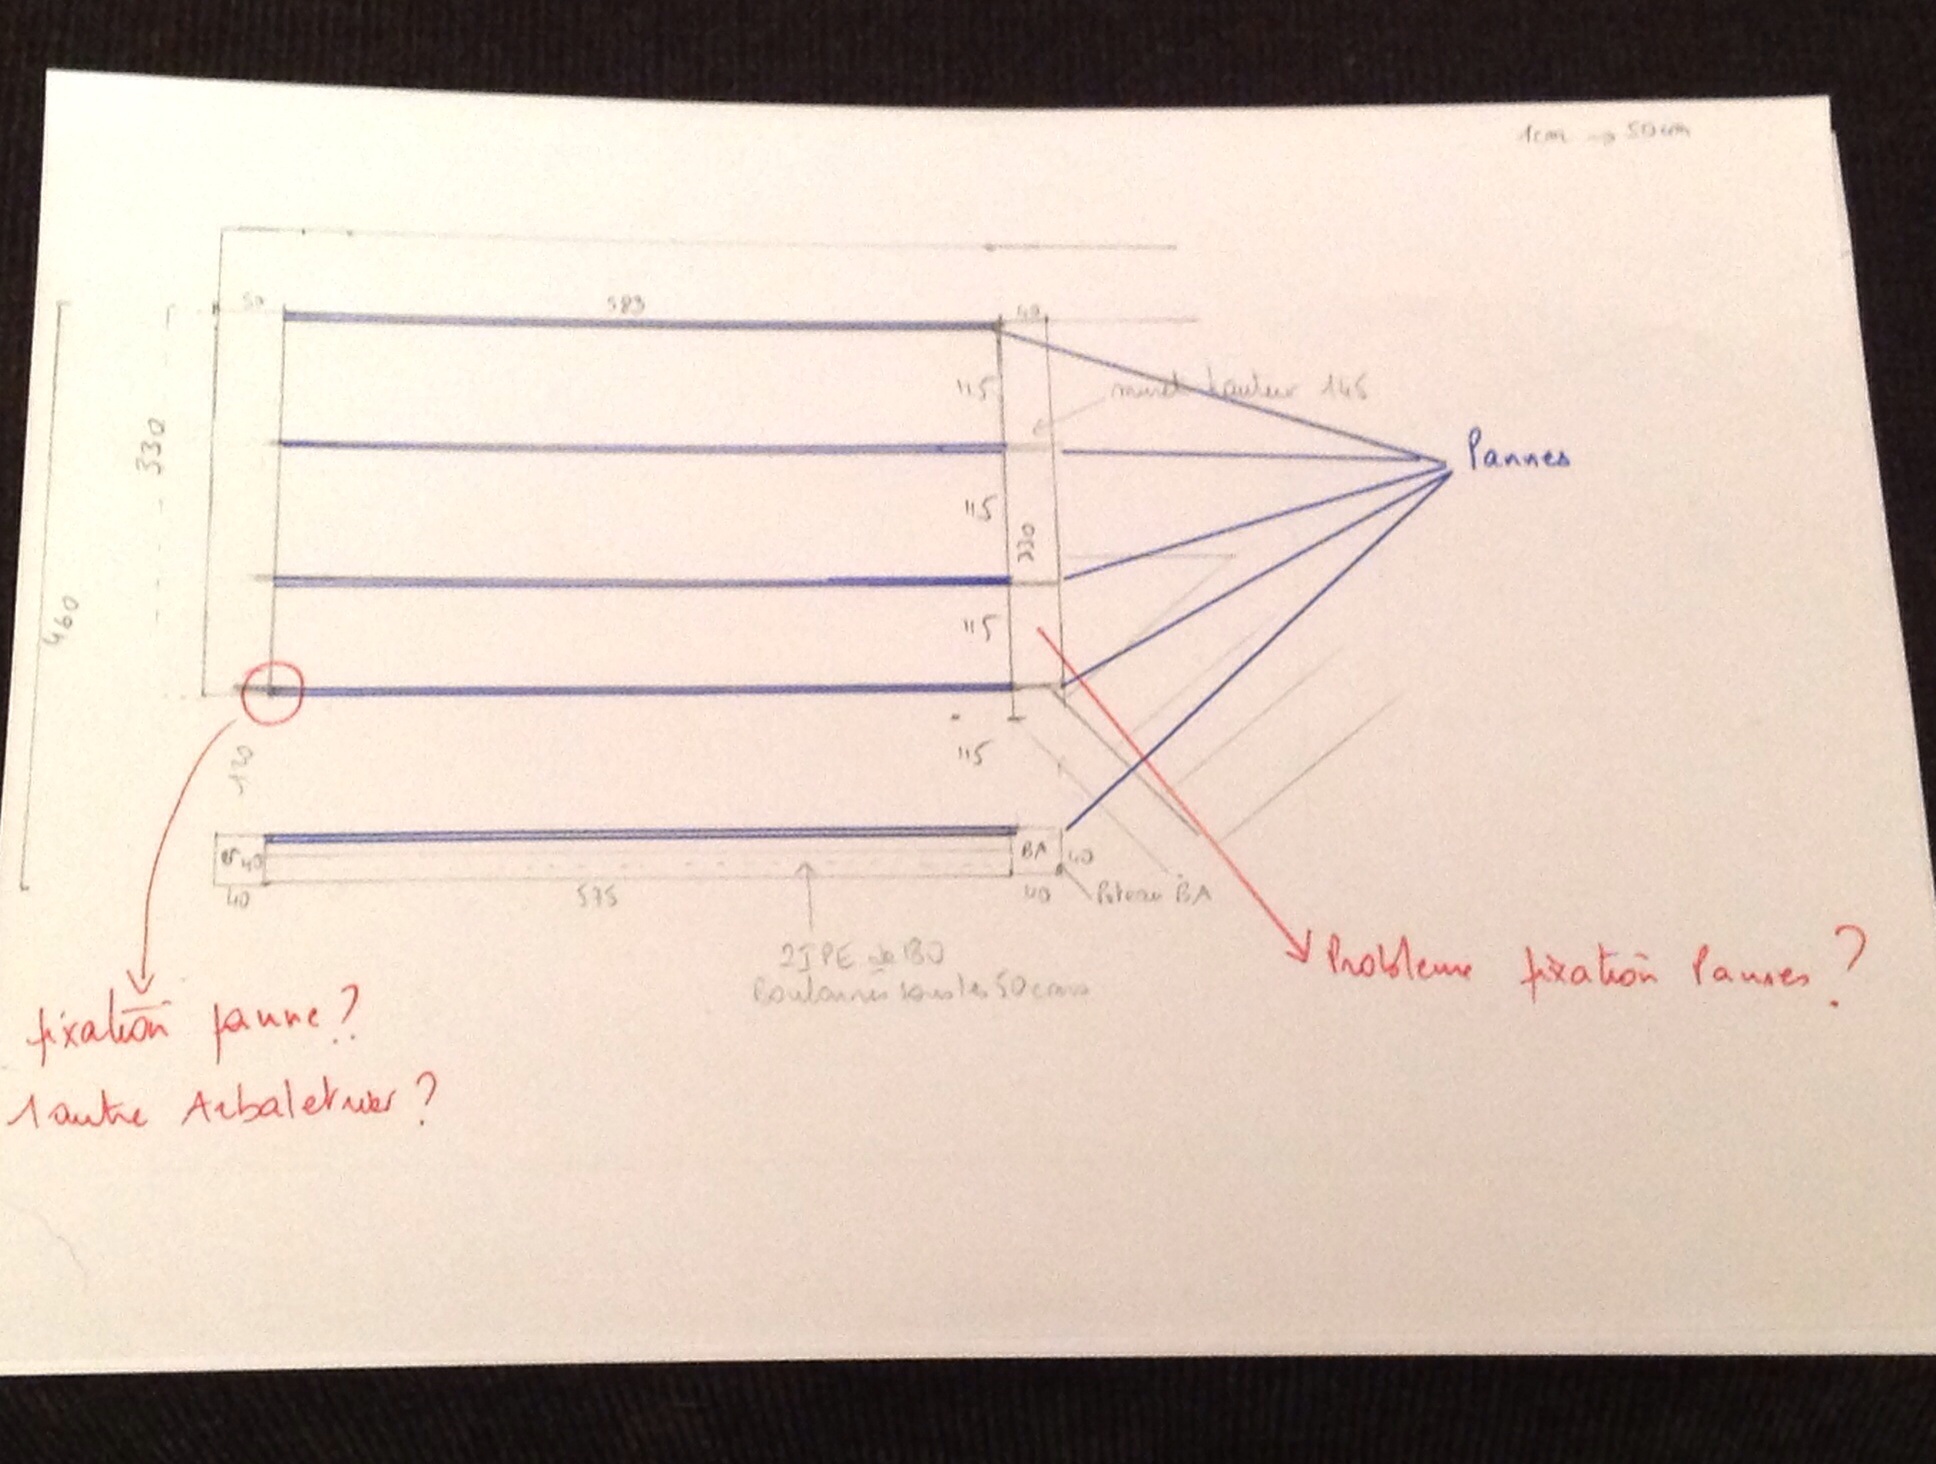 1cm → 50cm
50
583
40
115
muret hauteur 145
330
Pannes
115
330
460
115
120
115
40
BA
40
40
575
40
Poteau BA
2 IPE de 180
Boulonnés tous les 50 cms
Probleme fixation Pannes ?
fixation panne ?
1 autre Arbaletrier ?